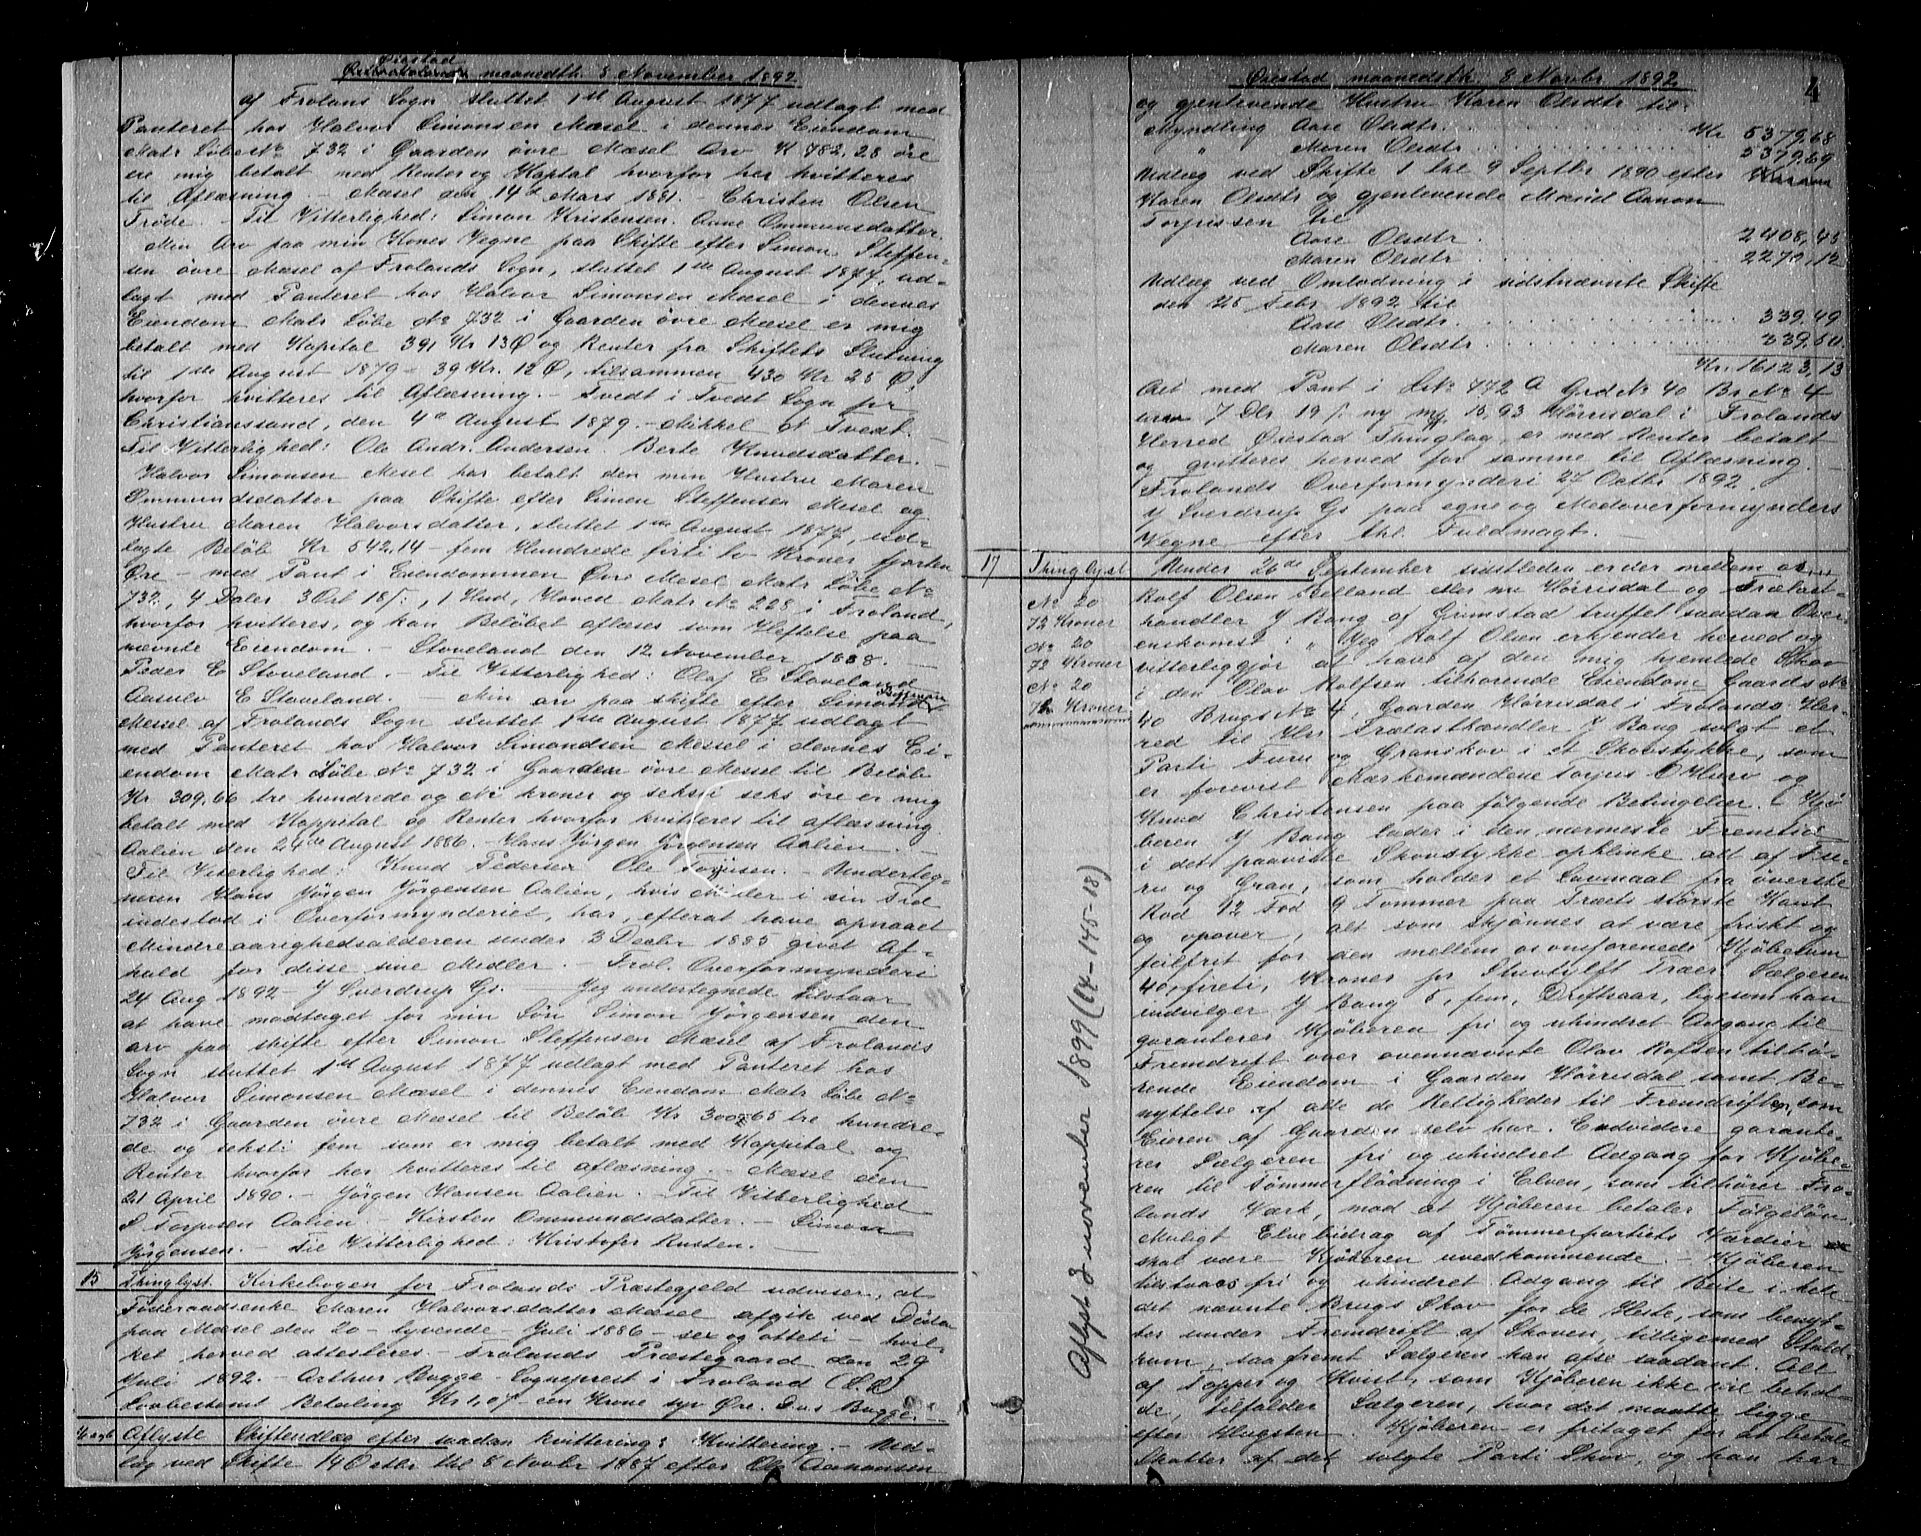 Øiestad
maanedsth. 8 November 1892.
af Frolans Sogn sluttet 1ste August 1877 udlagt med
Panteret hos Halvor Simonsen Mæsel i dennes Eiendom
Matr Løbe No 732 i Gaarden övre Mæsel Arv K 782,28 öre
ere mig betalt med Renter og Kaptal hvorfor her kvitteres
til Aflæsning – Mæsel den 14de Mars 1881. – Christen Olsen
Tröde. – Til Vitterlighed: Simon Kristensen. Aane Ommunsdatter.
Min Arv paa min Kones Vegne paa Skifte efter Simon Steffen-
sen övre Mæsel af Frolands Sogn, sluttet 1ste August 1877, ud-
lagt med Panteret hos Halvor Simonsen Mæsel i dennes
Eiendom Matr Löbe No 732 i Gaarden övre Mæsel er mig
betalt med Kapital 391 Kr 13 Ø og Renter fra Skiftets Slutning
til 1ste August 1879 – 39 Kr. 12 Ø, tilsammen 430 Kr 25 Ø,
hvorfor kvitteres til Aflæsning. – Tvedt i Tvedt Sogn pr
Christianssand, den 4de August 1879. – Mikkel N Tvedt. –
Til Vitterlighed: Ole Andr. Andersen. Berte Knudsdatter. –
Halvor Simonsen Mesel har betalt den min Hustru Maren
Ommundsdatter paa Skifte efter Simon Steffensen Mesel og
Hustru Maren Halvorsdatter, sluttet 1ste August 1877, ud-
lagte Beløb Kr 542,14 – fem Hundrede firti to Kroner fjorten
Øre – med Pant i Eiendommen Øvre Mesel Matr Löbe No
732, 4 Daler 3 Ort 18 /, 1 Hud, Hoved Matr No 228 i Froland,
hvorfor kvitteres, og kan Belöbet aflæses som Heftelse paa
nævnte Eiendom. – Stoveland den 12 November 1888. –
Peder E Stoveland. – Til Vitterlighed: Olaf E Stoveland
Aasulv E Stoveland. – Min arv paa skifte efter Simon
Mæsel af Frolands Sogn sluttet 1ste August 1877 udlagt
med Panteret hos Halvor Simondsen Mæsel i dennes Ei-
endom Matr Löbe No 732 i Gaarden övre Mæsel til Belöb
Kr 309,66 tre hundrede og Ni kroner og seksti seks öre er mig
betalt med Kappital og Renter hvorfor kvitteres til aflæsning.
Aalien den 24de August 1886. – Hans Jörgen Jörgensen Aalien. –
Til Viterlighed: Knud Pedersen Ole Torjusen. – Underteg-
neren Hans Jörgen Jörgensen Aalien, hvis Midler i sin Tid
indestod i Overformynderiet, har, efterat have opnaaet
Mindreaarighedsalderen under 3 Decbr 1885 givet Af-
kald for disse sine Medler. Frol. Overformynderi
24 Aug 1892 – J Sverdrup Gs. – Jeg undertegnede tilstaar
at have modtaget for min Sön Simon Jörgensen den
arv paa skifte efter Simon Steffensen Mæsel af Frolands
Sogn sluttet 1st August 1877 udlagt med Panteret hos
Halvor Simonsen Mæsel i dennes Eiendom Matr Löbe No
732 i Gaarden övre Mæsel til Belöb Kr 300,65 tre hundre-
de og seksti fem som er mig betalt med Kappital og
Renter hvorfor her kvitteres til aflæsning. – Mæsel den
21 April 1890. – Jörgen Hansen Aalien. – Til Vitterlighed
S Torjusen Aalien. – Kirsten Ommundsdatter. – Simon
Jörgensen. – Til Vitterlighed: Kristofer Rusten. –
15 Thinglyst. Kirkebogen for Frolands Præstegjeld udviser, at
Föderaadsenke Maren Halvorsdatter Mæsel afgik ved Döden
paa Mæsel den 20 – tyvende – Juli 1886 – sex og otteti – hvil-
ket herved attesteres. – Frolands Præstegaard den 29
Juli 1892. – Arthur Bugge – Sogneprest i Froland (L.S.)
Lovbestemt Betaling Kr 1,07 – een Krone syv Øre. D.u.s Bugge. –
Aflyste Skifteudlæg efter saadan kvittering: Kvittering. – Ud-
læg ved Skifte 14 Octbr thl 8 Novbr 1887 efter Ole Aanonsen
Øiestad maanedsth. 8 Novbr 1892. 4
og gjenlevende Hustru Karen Olsdtr til:
Myndling Aase Olsdtr. Kr 5379,68
" Maren Olsdtr 5379,69
Udlæg ved Skifte 1 thl 9 Septbr 1890 efter
Karen Olsdtr og gjenlevende Mand Aanon
Torjussen til
Aase Olsdtr. 2408,43
Maren Olsdtr 2270,12
Udlæg ved Omlodning i sidstnævnte Skifte
den 25 Febr 1892 til
Aase Olsdtr. 339,49
Maren Olsdtr 339,50
Kr. 16123,13
Alt med Pant i LNo 772 A Grd No 40 Br No 4
7 Dlr 19 /. ny 15,93 Hörrisdal i Frolands
Herred, Øiestad Thinglag, er med Renter betalt
og qvitteres herved for samme til Aflæsning.
Frolands Overformynderi 27 Octbr 1892.
J Sverdrup Gs paa egne og Medoverformynders
Vegne efter thl. Fuldmagt. –
17 Thinglyst Under 26de September sidstleden er der mellem os
No 20
72 Kroner
No 20
72 Kroner
No 20
72 Kroner
Rolf Olsen Helland eller nu Hörrisdal og Trælast-
handler J Bang af Grimstad truffet saadan Over-
enskomst: „Jeg Rolf Olsen erkjender herved og
vitterliggjör at have af den mig hjemlede Skov
i den Olav Rolfsen tilhørende Eiendom Gaards No
40 Brugs No 4, Gaarden Hörrisdal i Frolands Her-
red til Hr. Trælasthandler J Bang solgt et
Parti Furu og Granskov i et Skovstykke, som
er forevist Mærkemændene Torjus O Hurv og
Knud Christensen paa fölgende Betingelser. Kjö-
beren J Bang lader i den nærmeste Fremtid
i det paaviste Skovstykke opblinke alt af Fu-
ru og Gran, som holder et Lavmaal fra överste
Rod 12 Fod 9 Tommer paa Træets störste Kant
og opover, alt som skjönnes at være friskt og
feilfrit for den mellem os omforenede Kjöbesum
40, firti, Kroner pr Stuvtylft Træer Sælgeren
indvilger J Bang 5, fem, Driftsaar, ligesom han
garanterer Kjöberen fri og uhindret Adgang til
Fremdrift over ovennævnte Olav Rolfsen tilhö-
rende Eiendom i Gaarden Hörrisdal samt Be-
nyttelse af alle de Rettigheder til Fremdriften, som
Eieren af Gaarden selv har. Endvidere garante-
rer Sælgeren fri og uhindret Adgang for Kjöbe-
ren til Tömmerflödning i Elven, som tilhörer Fro-
lands Værk, mod at Kjöberen betaler Fölgelön.
Muligt Elvebidrag af Tömmerpartiets Værdier
skal være Kjöberen uvedkommende. – Kjöberen
tilstaaes fri og uhindret Adgang til Beite i hele
det nævnte Brugs Skov for de Heste, som benyt-
tes under Fremdrift af Skoven, tilligemed Stald-
rum, saafremt Sælgeren kan afse saadant. Alt
af Topper og Kvist, som Kjöberen ikke vil behol-
de, tilfalder Sælgeren, hvor det maatte ligge
efter Hugsten. Kjöberen er fritaget for at betale
Skatter af det solgte Parti Skov, og han har
Aflyst 3 november 1899 (14-145-18)